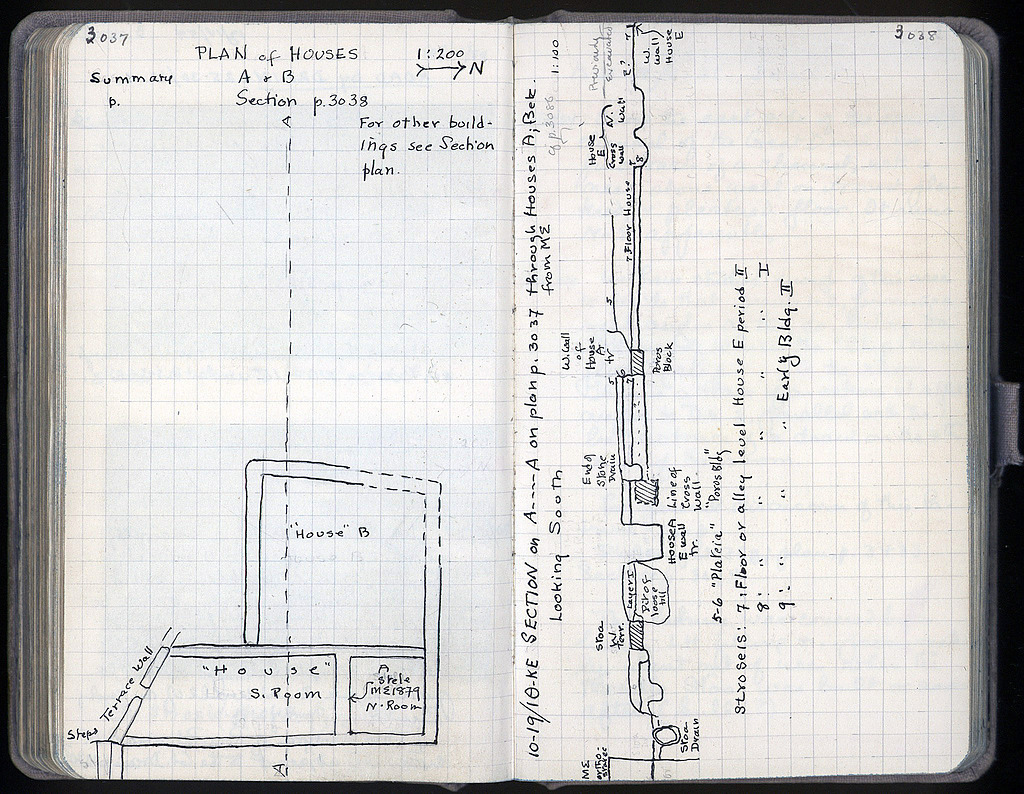 3037
PLAN of HOUSES
A & B
Section p. 3038
1:200
N
Summary
p.
For other build-
ings see Section
plan.
A
"House" B
Terrace Wall
Steps
"House"
S. Room
A
Stele
ME 1879
N. Room
A
3038
SECTION on A----A on plan p. 3037 through Houses A; B etc
from ME
1:100
Looking South
Previously
Excavated
W.
Wall
House
E
N.
Wall
House
E
Cross
Wall
8
7 Floor House
5
W. Wall
of
House
A
tr.
Poros
Block
5
6
7
End of
Stone
Drain
Line of
Cross
Wall
"Poros Bldg"
House A
E wall
tr.
Layer I
Pit of
loose
fill
Stoa
W.
Terr.
Stoa
Drain
ME
5-6 "Plateia"
Strosels: 7: Floor or alley level House E period II
8: " " " " " I
9: " " " Early Bldg. II